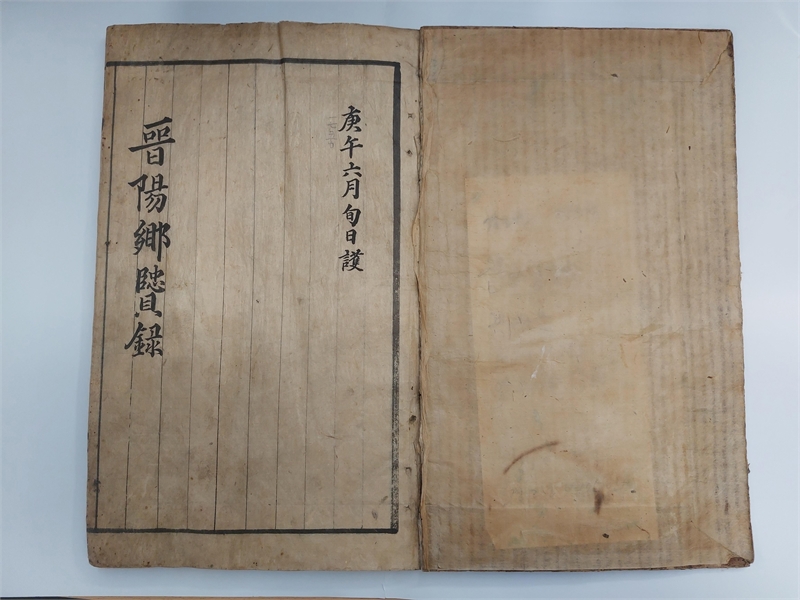 庚午六月旬日護
晋陽鄉賢録